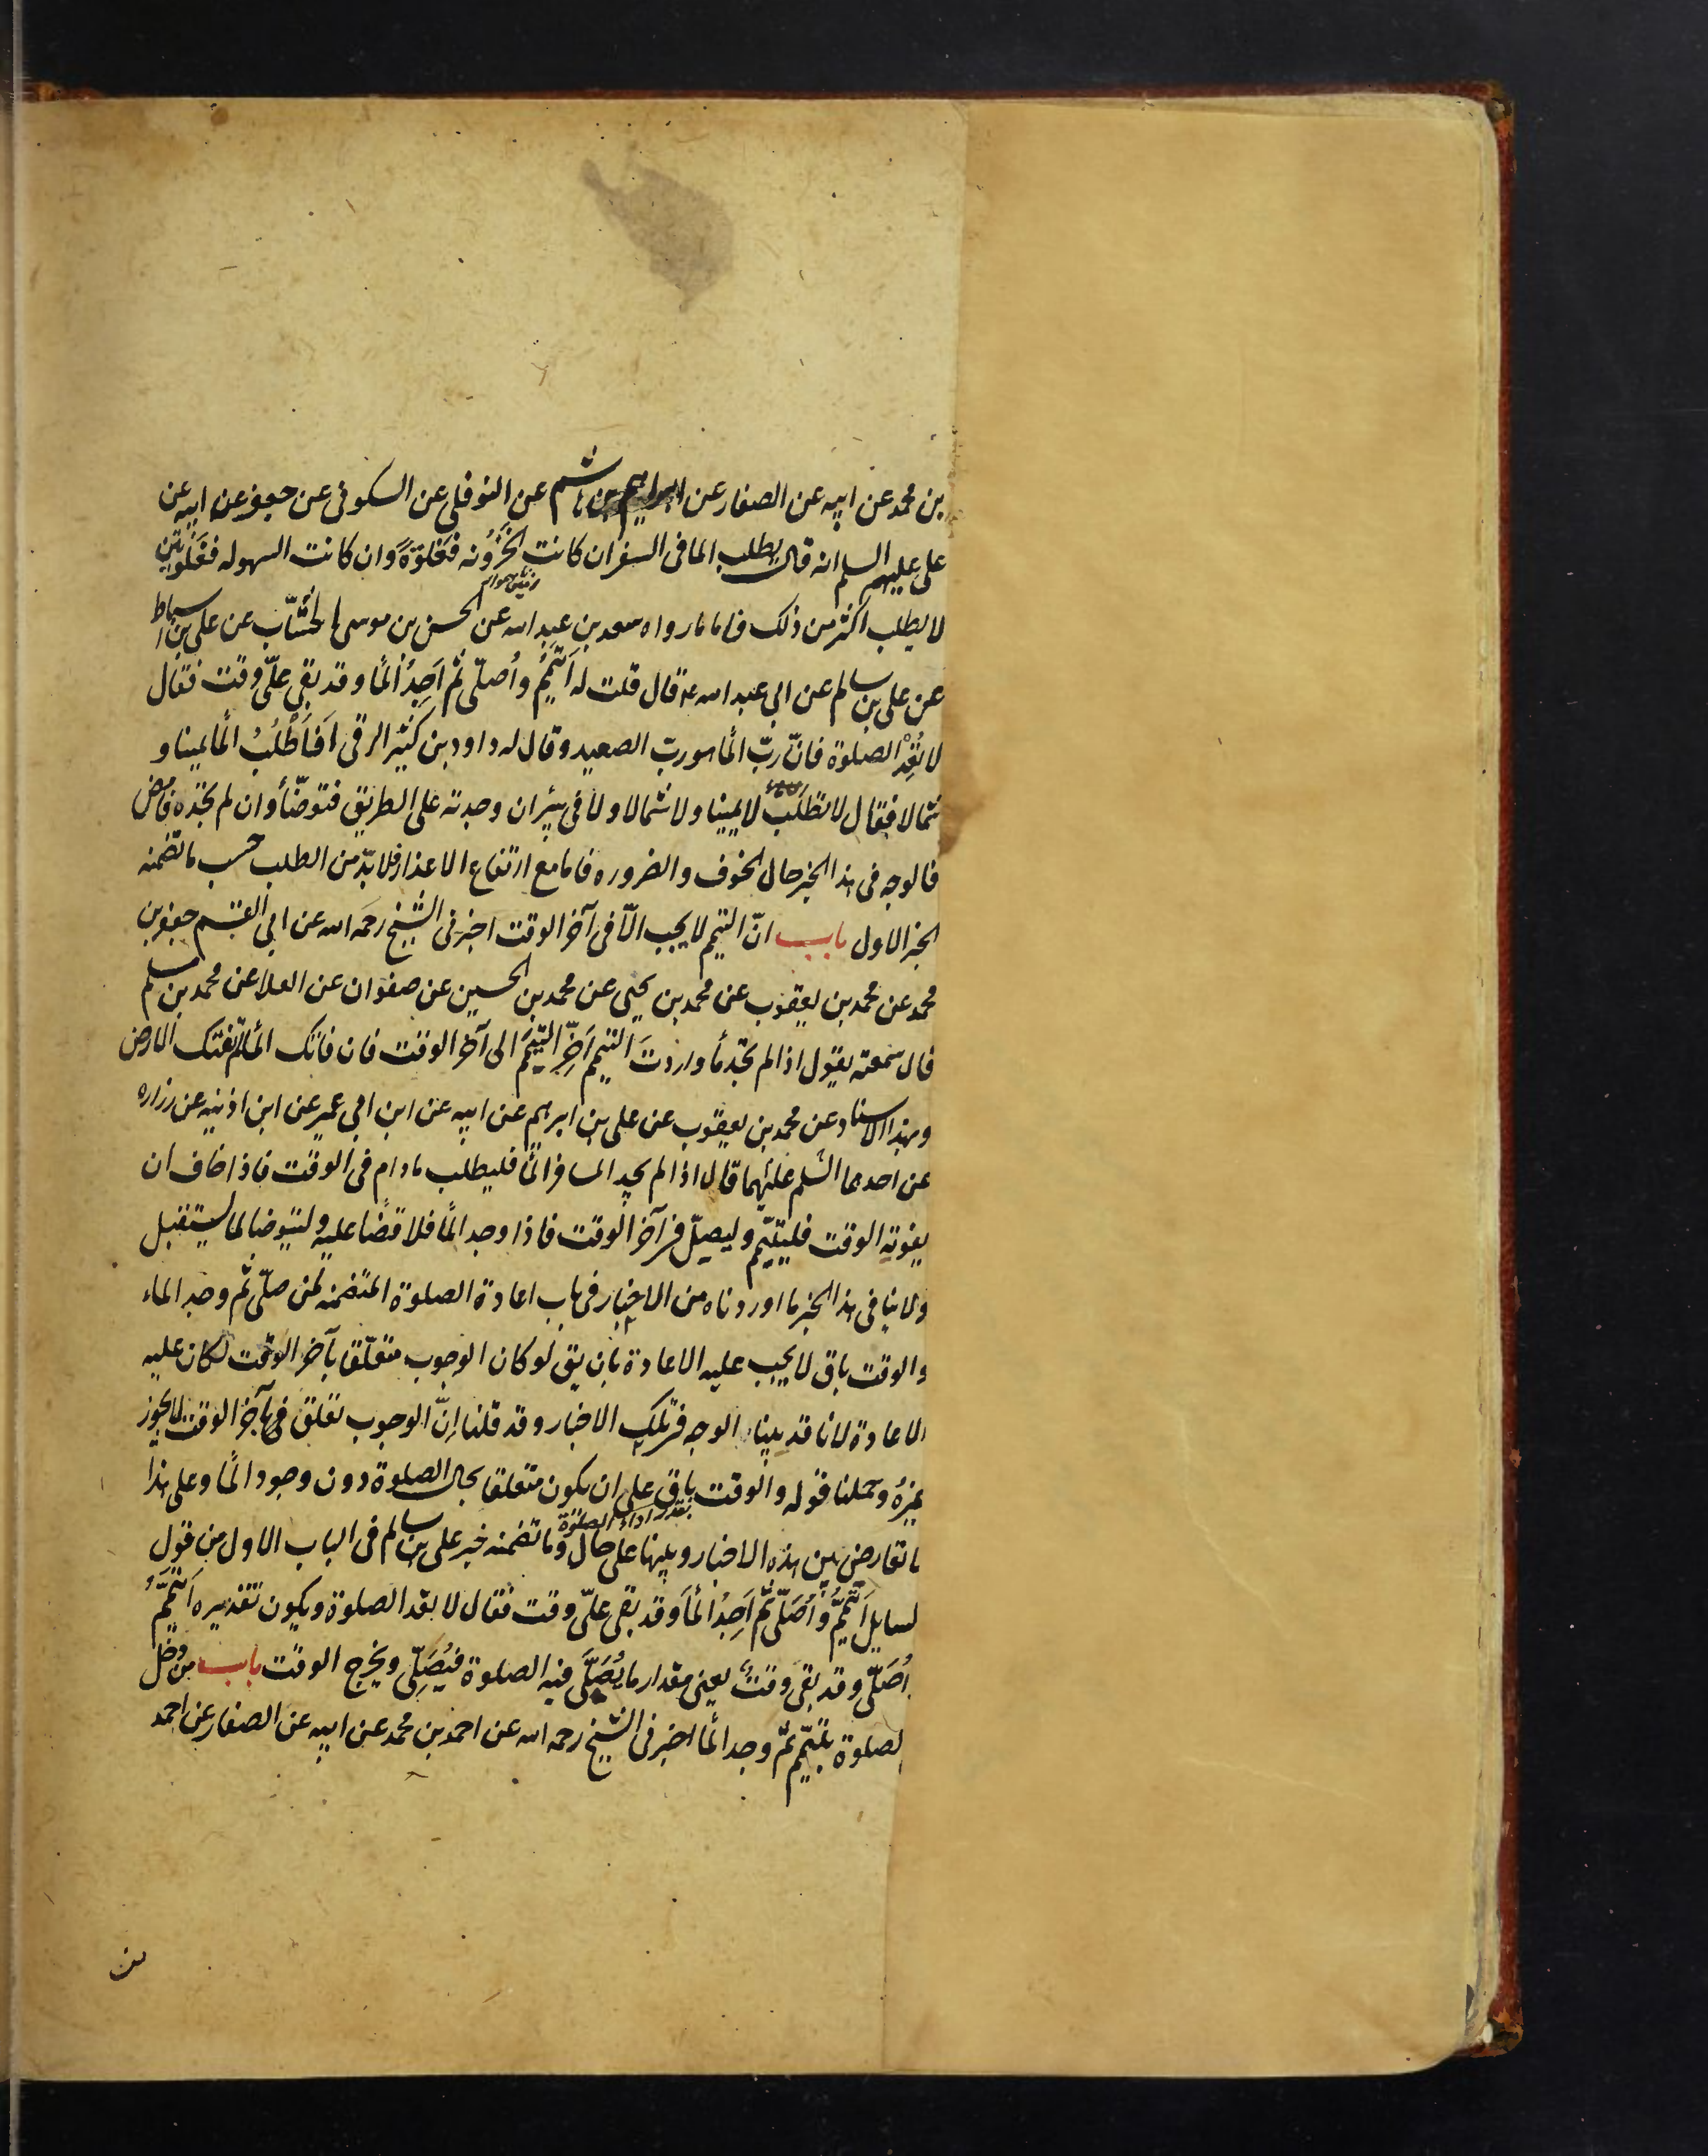 بن محمد عن ابيه عن الصفار عن ابراهيم بن هاشم عن النوفلى عن السكونى عن جعفر عن ابيه عن
على عليهم السلم انه قال يطلب الما فى السفر ان كانت الحُزُونه فَغَلوَةً وان كانت السهوله فغَلْوتين
لا يطلب اكثر من ذلك فاما ما رواه سعد بن عبد الله عن الحسن بن موسى الخشّاب عن على بن اسباط
عن على بن سالم عن ابى عبد الله ع قال قلت له اَتيمَّمُ واُصلّى ثم اَجِدُ المأ وقد بقى علىّ وقت فقال
لا تُعِدْ الصلوة فانّ ربّ المأ هو ربّ الصعيد وقال له داود بن كثير الرقى اَفَاَطْلُبُ المأ يمينا و
شمالا فقال لا تطلُب لا يمينا ولا شمالا ولا فى بئر ان وجدته على الطريق فتوضّأ وان لم تجده فامض
فالوجه فى هذا الخبر حال الخوف والضروره فاما مع ارتفاع الاعذار فلا بدّ من الطلب حسب ما تضمنه
الخبر الاول باب انّ التيمم لا يجب الّا فى آخر الوقت اخبرنى الشيخ رحمه الله عن ابى القسم جعفر بن
محمد عن محمد بن يعقوب عن محمد بن يحيى عن محمد بن الحسين عن صفوان عن العلا عن محمد بن مسلم
قال سمعته يقول اذا لم تجد مأ واردتَ التيمم اَخِّرِ التيمّمَ الى آخر الوقت فان فاتك المأ لم تفتك الارض
وبهذا الاسناد عن محمد بن يعقوب عن على بن ابرهيم عن ابيه عن ابن ابى عمير عن ابن اذينه عن زراره
عن احدهما السّلم عليهما قال اذا لم يجد المسافر المأ فليطلب ما دام فى الوقت فاذا خاف ان
يفوته الوقت فليتيمّم وليصلّ فى آخر الوقت فاذا وجد المأ فلا قضأ عليه وليتوضا لما يستقبل
ولا ينافى هذا الخبر ما اوردناه من الاخبار فى باب اعادة الصلوة المتضمنه لمن صلّى ثم وجد الماء
والوقت باق لا يجب عليه الاعادة بان يق لو كان الوجوب متعلّقا بآخر الوقت لكان عليه
الاعادة لانا قد بينا الوجه فى تلك الاخبار وقد قلنا اِنّ الوجوب تعلق بآخر الوقت لا يجوز
غيرُهُ وحملنا قوله والوقت باق على ان يكون متعلقا بحال الصلوة دون وجود المأ وعلى هذا
بقدر اداء الصلوة
لا تعارض بين هذه الاخبار وبينها على حال وما تضمنه خبر على بن سالم فى الباب الاول من قول
لسايل اَتيمّمُ واُصَلّى ثم اَجِدُ المأ وقد بقى علىّ وقت فقال لا يعد الصلوة ويكون تقديره اَتيمّمُ
اُصَلّى وقد بقى وقتٌ يعنى مقدار ما يُصَلّى فيه الصلوة فيُصَلِّى ويخرج الوقت باب من دخل
لصلوة بتيمّم ثم وجد المأ اخبرنى الشيخ رحمه الله عن احمد بن محمد عن ابيه عن الصفار عن احمد
بن